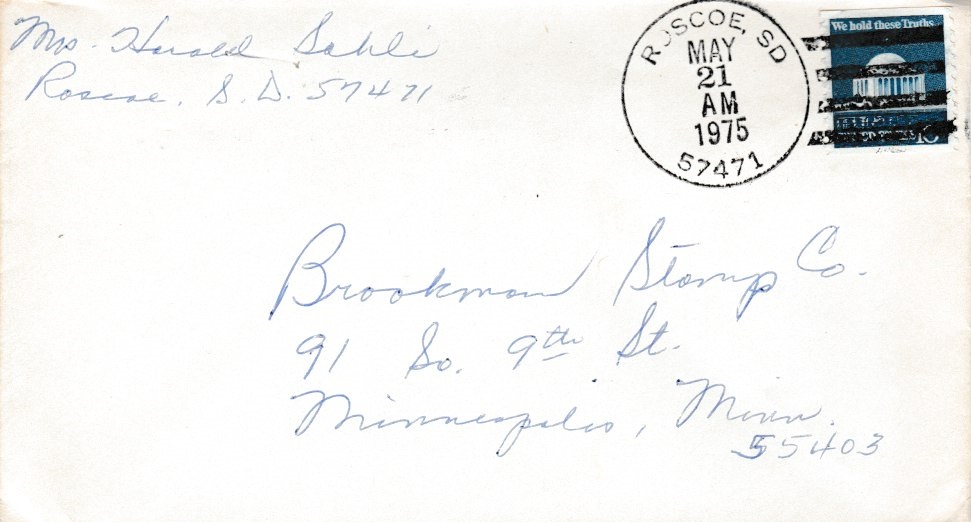 Mrs. Harold Sahli
Roscoe, S. D. 57471
ROSCOE, SD
MAY
21
AM
1975
57471
We hold these Truths
10
Brookman Stamp Co.
91 So. 9th St.
Minneapolis, Minn.
55403